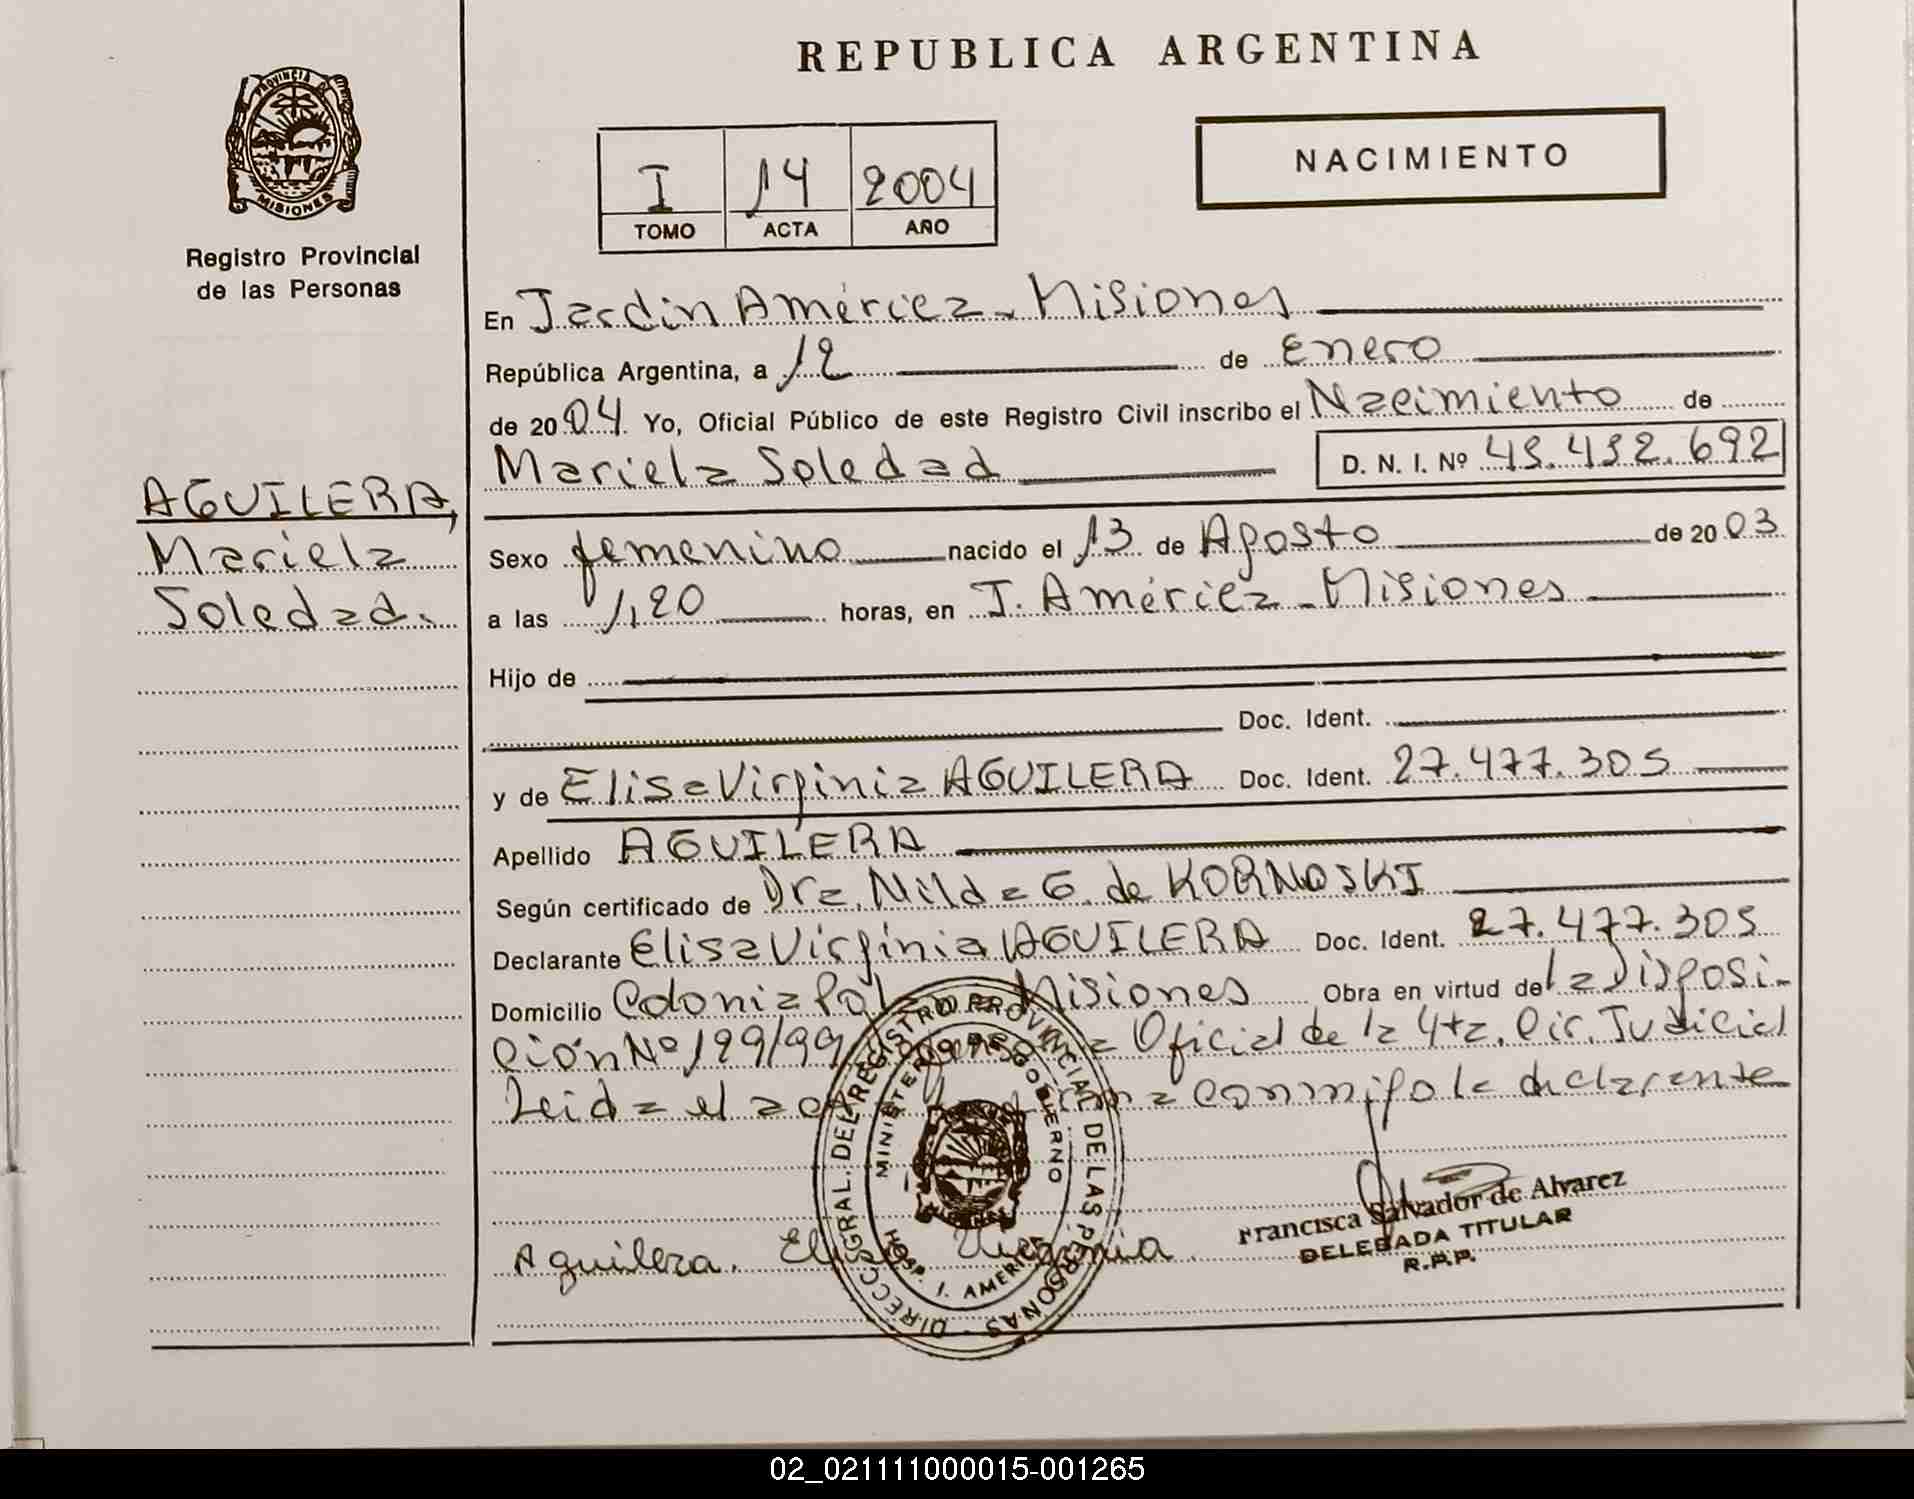 REPUBLICA ARGENTINA
PROVINCIA DE
MISIONES
Registro Provincial
de las Personas
I 14 2004
TOMO ACTA AÑO
NACIMIENTO
AGUILERA,
Mariela
Soledad.
En Jardín América - Misiones
República Argentina, a 12 de Enero
de 2004 Yo, Oficial Público de este Registro Civil inscribo el Nacimiento de
Mariela Soledad D. N. I. Nº 45.432.692
Sexo femenino nacido el 13 de Agosto de 2003
a las 1,20 horas, en J. América - Misiones
Hijo de
Doc. Ident.
y de Elisa Virginia AGUILERA Doc. Ident. 27.477.305
Apellido AGUILERA
Según certificado de Dra. Nilda G. de KORNOSKI
Declarante Elisa Virginia AGUILERA Doc. Ident. 27.477.305
Domicilio Colonia Misiones Obra en virtud de la Disposi-
ción Nº 199/99 Oficial de la 4ta. Cir. Judicial
Leida el conmigo la declarante
DIRECC. GRAL. DEL REGISTRO PROVINCIAL DE LAS PERSONAS
MINISTERIO DE GOBIERNO
HOSP. J. AMERICA
Aguilera. Elisa Virginia.
Francisca Salvador de Alvarez
DELEGADA TITULAR
R.P.P.
02_021111000015-001265